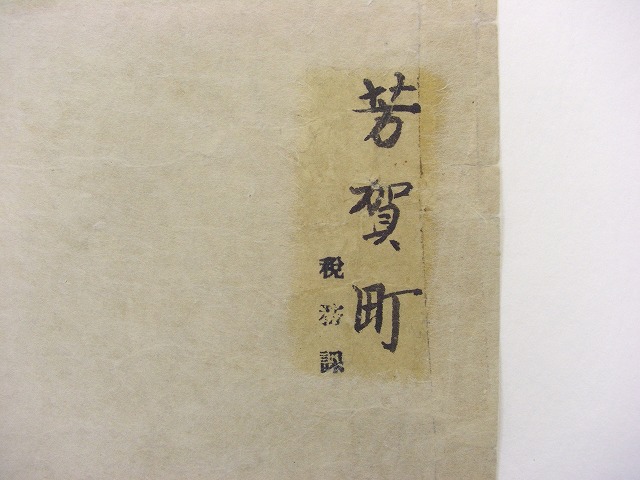 芳賀町
税務課